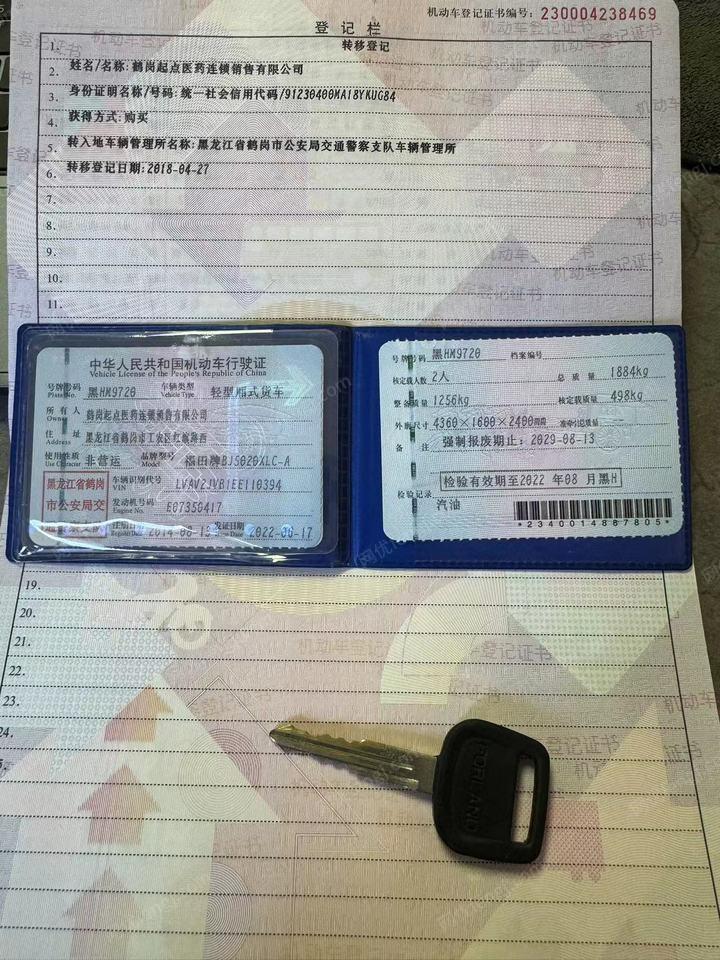 机动车登记证书编号：230004238469
登记栏
1. 转移登记
2. 姓名/名称:鹤岗起点医药连锁销售有限公司
3. 身份证明名称/号码:统一社会信用代码/91230400MA18YKUG84
4. 获得方式:购买
5. 转入地车辆管理所名称:黑龙江省鹤岗市公安局交通警察支队车辆管理所
6. 转移登记日期:2018-04-27
7.
8.
9.
10.
11.
中华人民共和国机动车行驶证
Vehicle License of the People's Republic of China
号牌号码 黑HM9720 车辆类型 轻型厢式货车
Plate No. Vehicle Type
所有人 鹤岗起点医药连锁销售有限公司
Owner
住址 黑龙江省鹤岗市工农区红旗路西
Address
使用性质 非营运 品牌型号 福田牌BJ5020XLC-A
Use Character Model
黑龙江省鹤岗
市公安局交
车辆识别代号 LVAV2JVB1EE110394
VIN
发动机号码 E07350417
Engine No.
注册日期 发证日期 2022-06-17
Register Date Issue Date
号牌号码 黑HM9720 档案编号
核定载人数 2人 总质量 1884kg
整备质量 1256kg 核定载质量 498kg
外廓尺寸 4360×1600×2400mm 准牵引总质量 --
备注 强制报废期止：2029-08-13
检验有效期至2022年08月黑H
检验记录
汽油
*2340014867805*
19.
20.
21.
22.
23.
24.
FORLAND